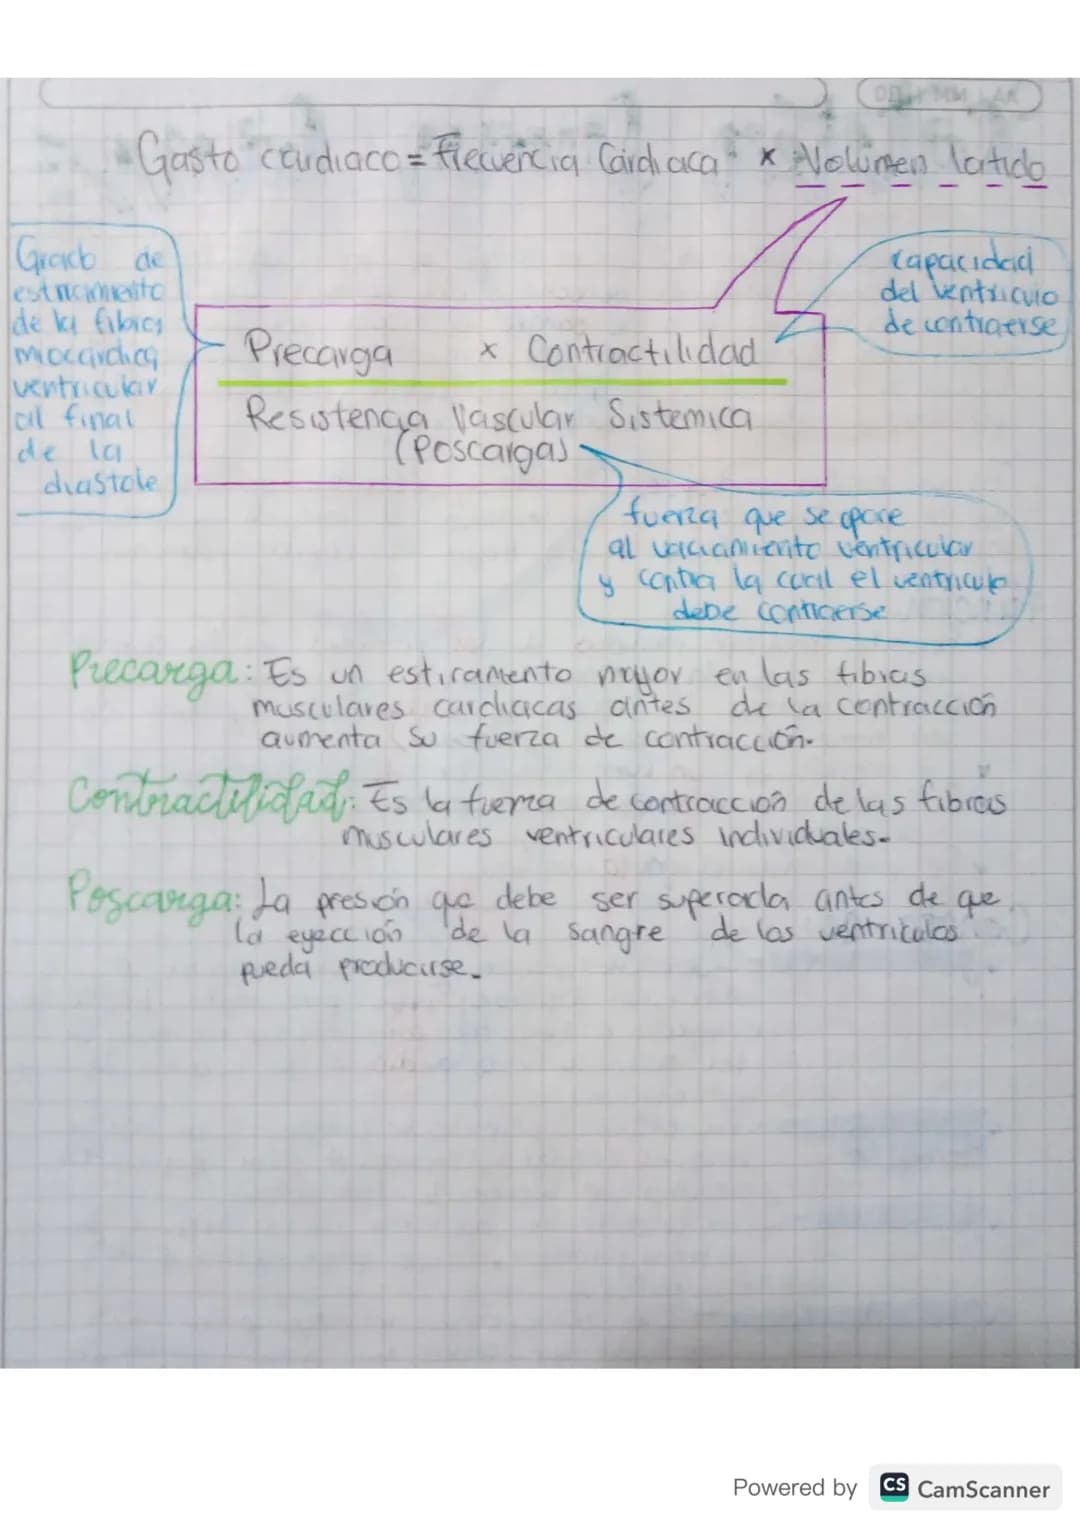 DD MM AA
Gasto cardiaco = Frecuencia Cardiaca x Volumen latido
Grado de
estiramiento
de la fibras
miocardica
ventricular
al final
de la
diastole
capacidad
del ventriculo
de contraerse
Precarga x Contractilidad
Resistencia Vascular Sistemica
(Poscarga)
fuerza que se opone
al vaciamiento ventricular
y contra la cual el ventriculo
debe contraerse
Precarga: Es un estiramento mayor en las fibras
musculares cardiacas antes de la contracción
aumenta su fuerza de contracción.
Contractilidad: Es la fuerza de contracción de las fibras
musculares ventriculares individuales.
Poscarga: La presión que debe ser superada antes de que
la eyección de la sangre de los ventriculos
pueda producirse.
Powered by CS CamScanner